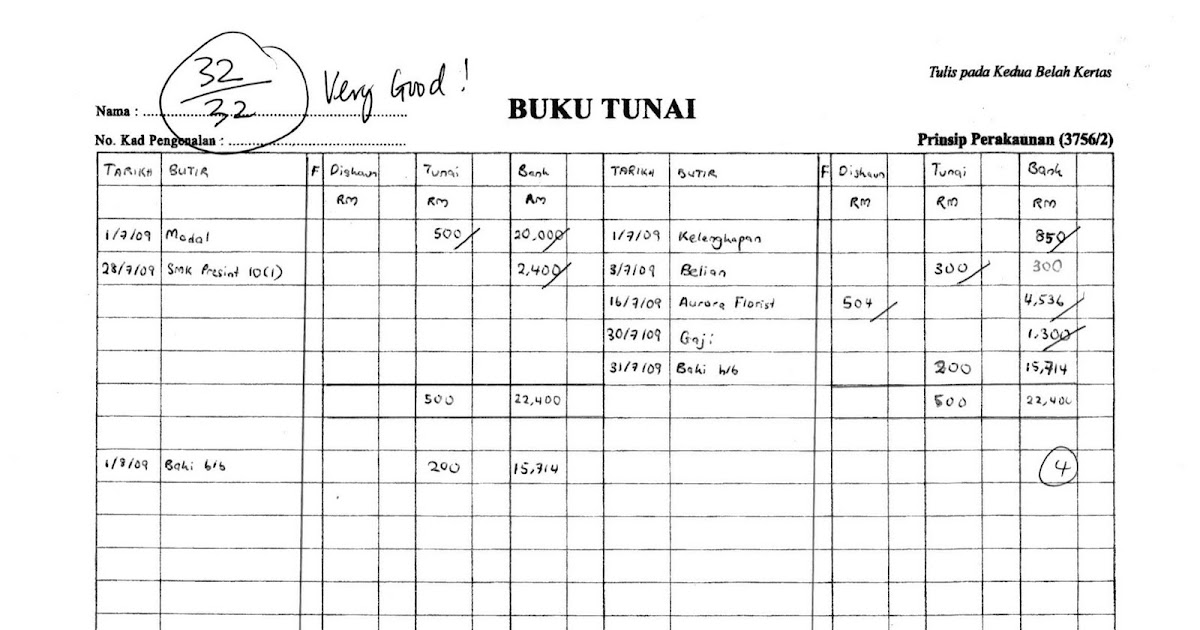 32
32
Very Good!
Tulis pada Kedua Belah Kertas
Nama :
BUKU TUNAI
No. Kad Pengenalan :
Prinsip Perakaunan (3756/2)
TARIKH BUTIR F Diskaun Tunai Bank TARIKH BUTIR F Diskaun Tunai Bank
RM RM RM RM RM RM
1/7/09 Modal 500 20,000 1/7/09 Kelengkapan 850
28/7/09 SMK Presint 10(1) 2,400 3/7/09 Belian 300 300
16/7/09 Aurora Florist 504 4,536
30/7/09 Gaji 1,300
31/7/09 Baki h/b 200 15,714
500 22,400 500 22,400
1/8/09 Baki b/b 200 15,714
4